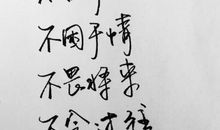 不困于情
不畏将来
不念过往